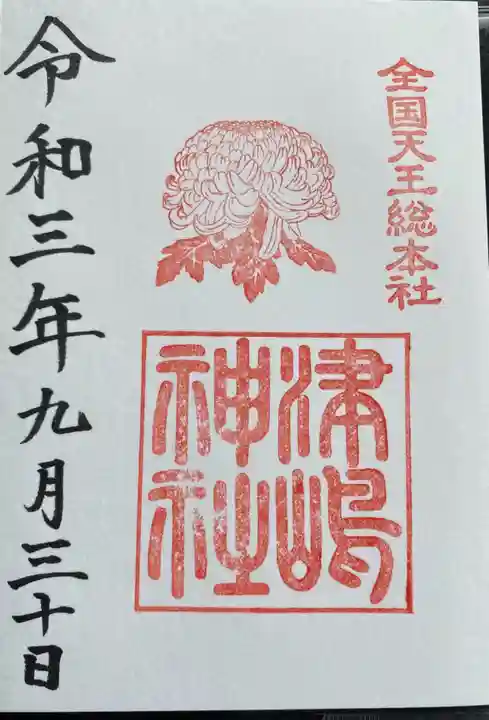 全国天王総本社
津嶋
神社
令和三年九月三十日